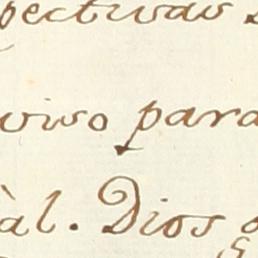 pectivas
viso para
àl. Dios